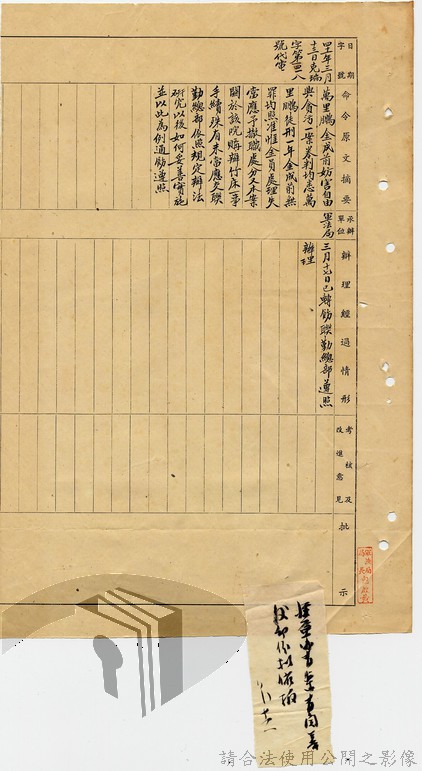 日期
字號
命令原文摘要
承辦單位
辦理經過情形
考核及改進意見
批示
四十一年三月
十三日克瑞
字第一八
號代電
萬里鵬金成前妨害自由
與會污一案卷判均悉萬
里鵬徒刑一年金成前無
罪均照准惟金員處理失
當應予撤職處分又本案
關於該院購辦竹床一事
手續殊有未當應交聯
勤總部依照規定辦法
研究以後如何妥善實施
並以此為例通飭遵照
軍法局
三月十九日已轉飭聯勤總部遵照
辦理
請合法使用公開之影像